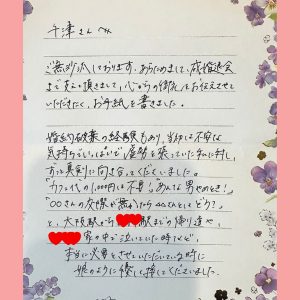 千津さんへ
ご無沙汰しております。あらためまして、成婚退会
まで支えて頂きまして、心からの御礼をお伝えさせて
いただきたく、お手紙を書きました。
婚約破棄の経験もあり、当初は不安な
気持ちでいっぱいで、虚勢を張っていた私に対し、
ずっと真剣に向き合ってくださいました。
「カフェ代の1,000円は不要!」「あんな男やめとき!」
「○○さんの交際が無かったら△△さんとしてどう?」
と、大阪駅から 駅までの帰り道や、
家の中で泣いていた時など、
本当に必要とさせていただいている時に
娘のように優しく接してくださいました。